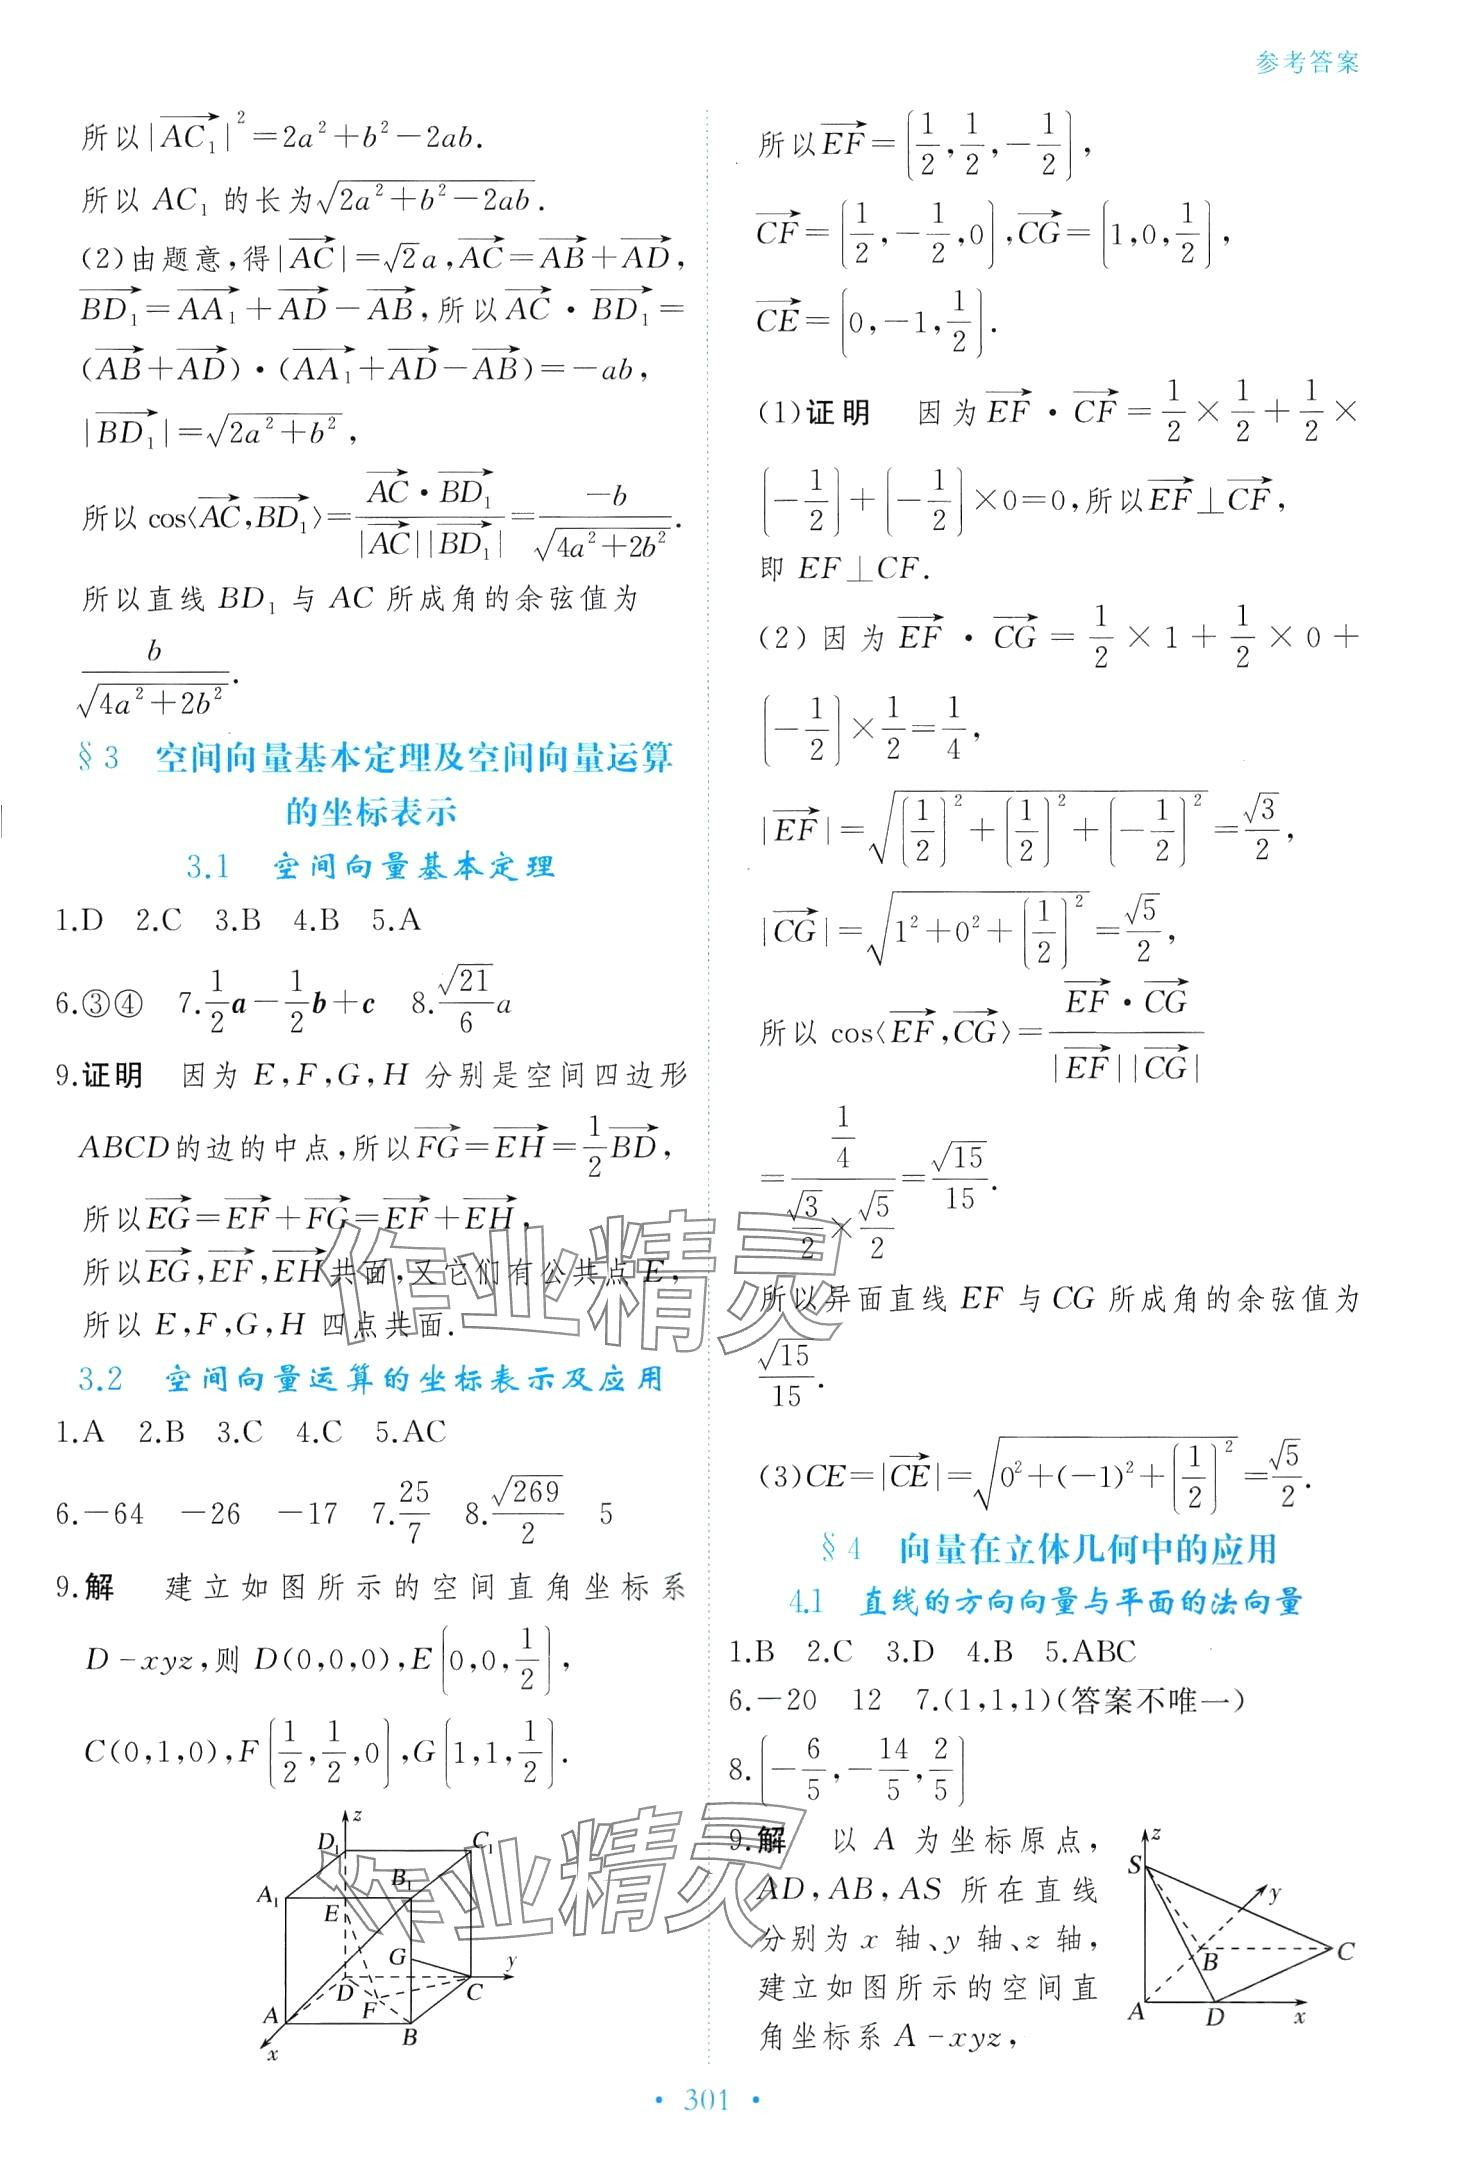 参考答案
所以|AC₁|²=2a²+b²-2ab.
所以 AC₁ 的长为√(2a²+b²-2ab).
(2)由题意,得|AC|=√2a,AC=AB+AD,
BD₁=AA₁+AD-AB,所以AC·BD₁=
(AB+AD)·(AA₁+AD-AB)=-ab,
|BD₁|=√(2a²+b²),
所以 cos⟨AC,BD₁⟩=(AC·BD₁)/(|AC||BD₁|)=-b/√(4a²+2b²).
所以直线 BD₁ 与 AC 所成角的余弦值为
b/√(4a²+2b²).
§3 空间向量基本定理及空间向量运算
的坐标表示
3.1 空间向量基本定理
1.D 2.C 3.B 4.B 5.A
6.③④ 7.1/2a-1/2b+c 8.√21/6a
9.证明 因为 E,F,G,H 分别是空间四边形
ABCD的边的中点,所以FG=EH=1/2BD,
所以EG=EF+FG=EF+EH,
所以EG,EF,EH共面,又它们有公共点 E,
所以 E,F,G,H 四点共面.
3.2 空间向量运算的坐标表示及应用
1.A 2.B 3.C 4.C 5.AC
6.-64 -26 -17 7.25/7 8.√269/2 5
9.解 建立如图所示的空间直角坐标系
D-xyz,则 D(0,0,0),E(0,0,1/2),
C(0,1,0),F(1/2,1/2,0),G(1,1,1/2).
z
D₁
C₁
A₁
B₁
E
G
y
D
F
C
A
B
x
所以EF=(1/2,1/2,-1/2),
CF=(1/2,-1/2,0),CG=(1,0,1/2),
CE=(0,-1,1/2).
(1)证明 因为EF·CF=1/2×1/2+1/2×
(-1/2)+(-1/2)×0=0,所以EF⊥CF,
即 EF⊥CF.
(2)因为EF·CG=1/2×1+1/2×0+
(-1/2)×1/2=1/4,
|EF|=√((1/2)²+(1/2)²+(-1/2)²)=√3/2,
|CG|=√(1²+0²+(1/2)²)=√5/2,
所以 cos⟨EF,CG⟩=(EF·CG)/(|EF||CG|)
=(1/4)/(√3/2×√5/2)=√15/15.
所以异面直线 EF 与 CG 所成角的余弦值为
√15/15.
(3)CE=|CE|=√(0²+(-1)²+(1/2)²)=√5/2.
§4 向量在立体几何中的应用
4.1 直线的方向向量与平面的法向量
1.B 2.C 3.D 4.B 5.ABC
6.-20 12 7.(1,1,1)(答案不唯一)
8.(-6/5,-14/5,2/5)
9.解 以 A 为坐标原点,
AD,AB,AS 所在直线
分别为 x 轴、y 轴、z 轴,
建立如图所示的空间直
角坐标系 A-xyz,
z
S
y
B
C
A
D
x
作业精灵
作业精灵
· 301 ·